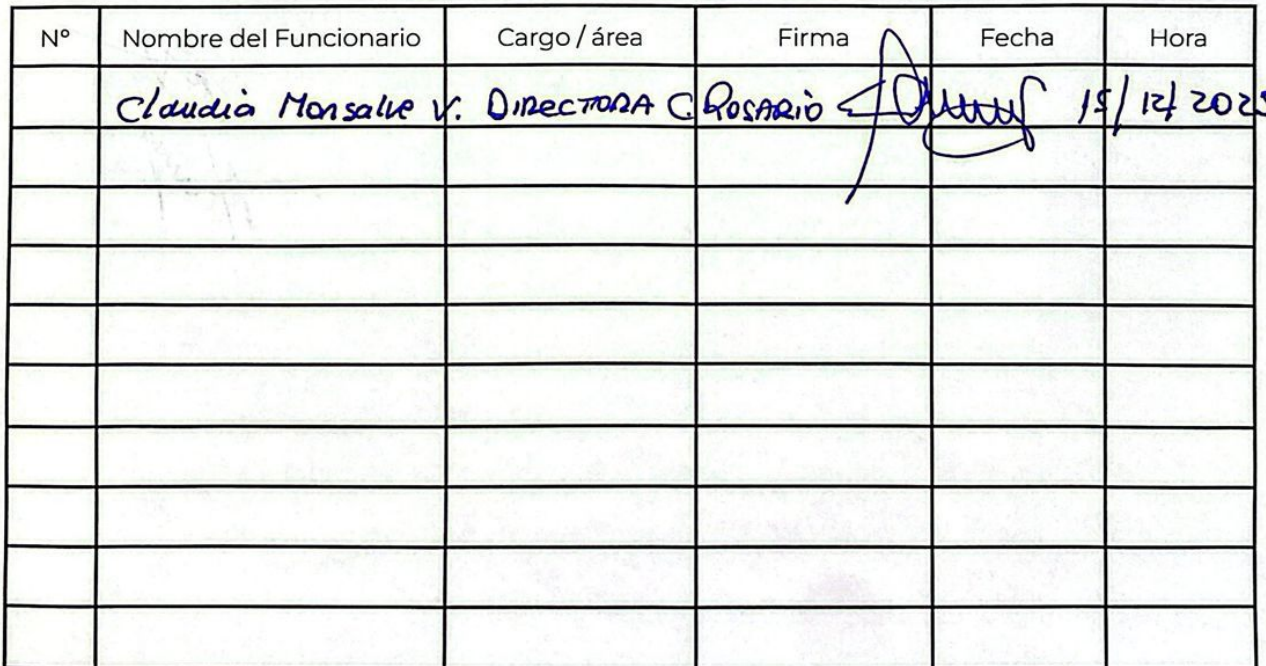 Nº Nombre del Funcionario Cargo / área Firma Fecha Hora
Claudia Monsalve V. DIRECTORA C. ROSARIO 15/12/202